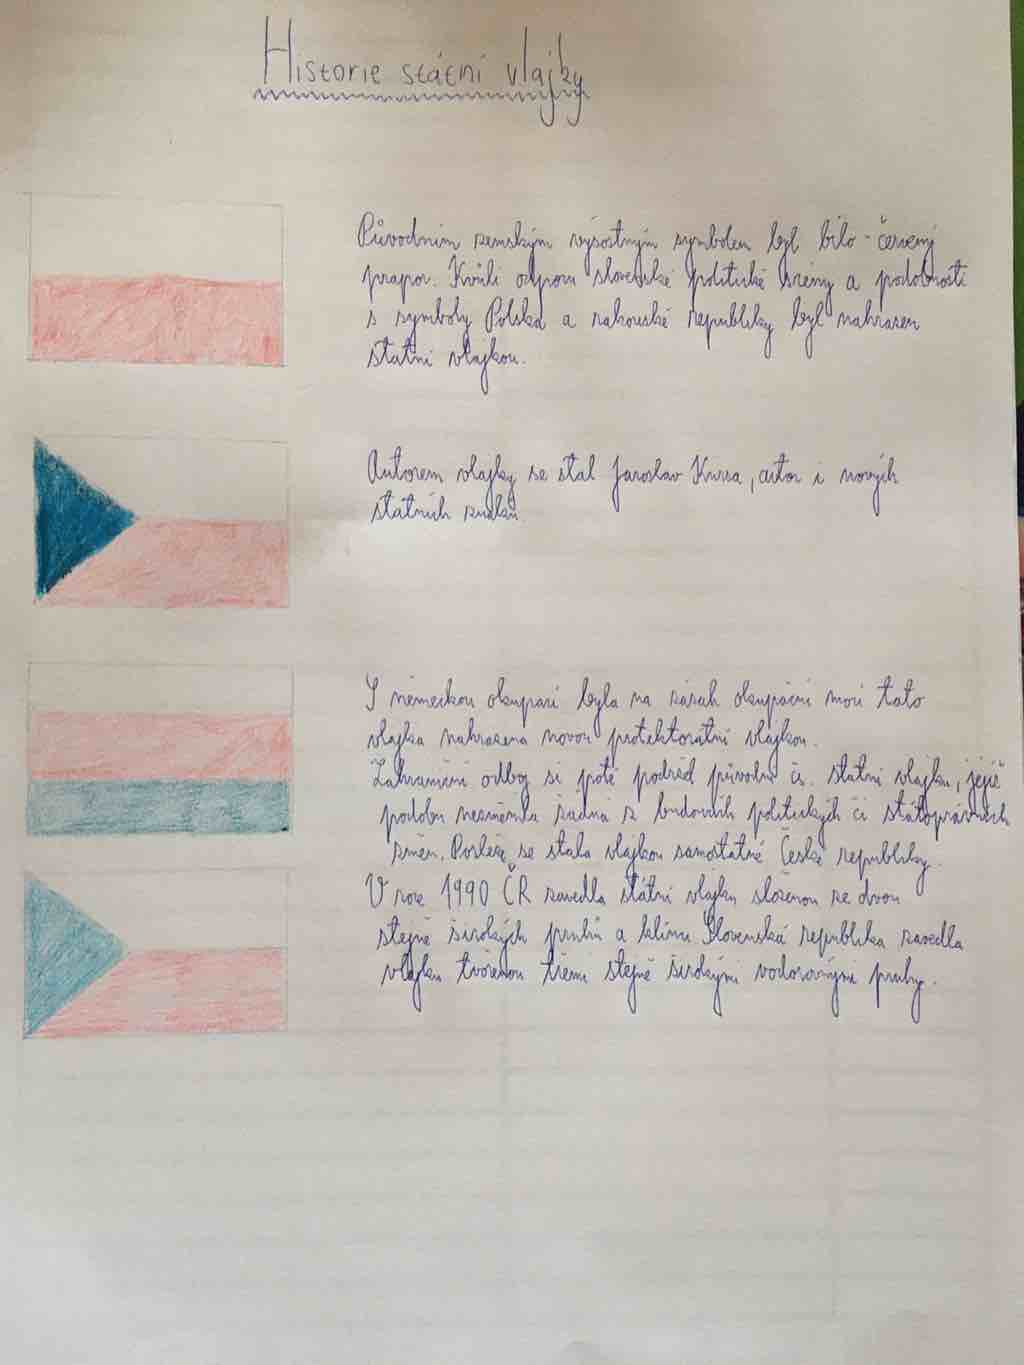 Historie státní vlajky
Původním zemským výsostným symbolem byl bílo-červený
prapor. Kvůli odporu slovenské politické scény a podobnosti
s symboly Polska a rakouské republiky byl nahrazen
státní vlajkou.
Autorem vlajky se stal Jaroslav Kursa, autor i nových
státních znaků.
S německou okupací byla na zásah okupační moci tato
vlajka nahrazena novou protektorátní vlajkou.
Zahraniční odboj si poté podržel původní čs. státní vlajku, jejíž
podobu nezměnila žádná z budoucích politických či státoprávních
změn. Posléze se stala vlajkou samostatné České republiky.
V roce 1990 ČR zavedla státní vlajku složenou ze dvou
stejně širokých pruhů a klínu. Slovenská republika zavedla
vlajku tvořenou třemi stejně širokými vodorovnými pruhy.